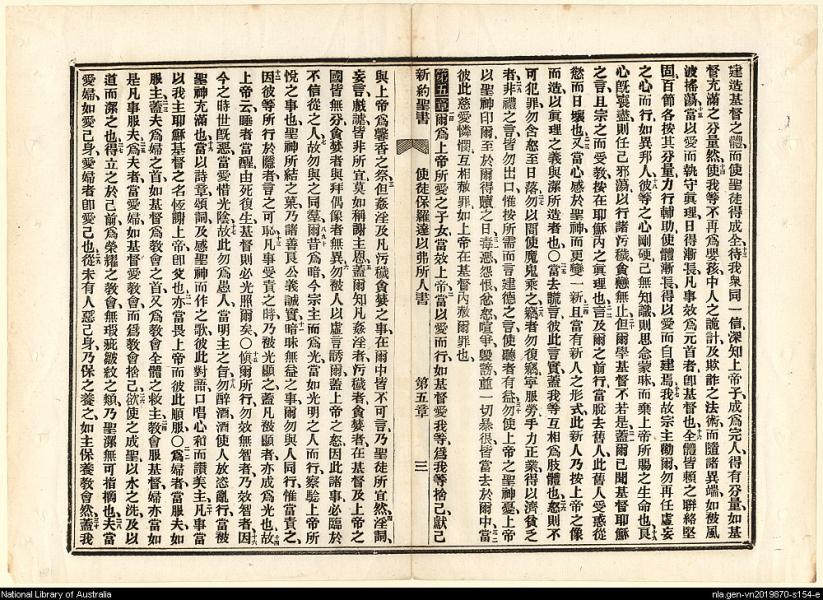 建造基督之體而使聖徒得成全待我衆同一信深知上帝子成爲完人得有分量如基
督充滿之分量然使我等不再爲嬰孩中人之詭計及欺詐之法術而隨諸異端如被風
波搖蕩當以愛而執守眞理日得漸長凡事效爲元首者卽基督也全體皆賴之聯絡堅
固百節各按其分量力行輔助使體漸長得以愛而自建焉我故宗主勸爾勿再任虛妄
之心而行如異邦人彼等之心剛硬己無知識則思念蒙昧而棄上帝所賜之生命也良
心旣喪盡則任己邪蕩以行諸汚穢貪戀無止但爾學基督不若是蓋爾已聞基督耶穌
之言且宗之而受敎按在耶穌內之眞理也言及爾之前行當脫去舊人此舊人受惑從
慾而日壞也又當心感於聖神而更變一新且當有新人之形式此新人乃按上帝之像
而造以眞理之義與潔所造者也〇當去謊言彼此言實蓋我等互相爲肢體也怒則不
可犯罪勿含怒至日落勿以間使魔鬼乘之竊者勿復竊寧服勞手力正業得以濟貧乏
者非禮之言皆勿出口惟按所需而言建德之言使聽者有益勿使上帝之聖神憂上帝
以聖神印爾至於爾得贖之日毒惡怨恨忿怒喧爭毀謗並一切暴很皆當去於爾中當
彼此慈愛憐憫互相赦罪如上帝在基督內赦爾罪也
第五章爾爲上帝所愛之子女當效上帝當以愛而行如基督愛我等爲我等捨己獻己
新約聖書 使徒保羅達以弗所人書 第五章 三
與上帝爲馨香之祭但姦淫及凡汚穢貪婪之事在爾中皆不可言乃聖徒所宜然淫詞
妄言戲謔皆非所宜莫如稱謝主恩蓋爾知凡姦淫者汚穢者貪婪者在基督及上帝之
國皆無分貪婪者與拜偶像者無異勿被人以虛言誘爾蓋上帝之怒因此諸事必臨於
不信從之人故勿與之同羣爾昔爲暗今宗主而爲光當如光明之人而行察驗上帝所
悅之事也聖神所結之菓乃諸善良公義誠實暗昧無益之事爾勿與人同行惟當責之
因彼等所行於隱者言之可恥凡事受責之時乃被光顯之蓋凡被顯者亦成爲光也故
上帝云睡者當醒由死復生基督則必光照爾矣〇愼爾所行勿效無智者乃效智者因
今之時世旣惡當愛惜光陰故此勿爲愚人當明主之旨勿醉酒酒使人放恣亂行當被
聖神充滿也當以詩章頌詞及感聖神而作之歌彼此對語口唱心和而讚美主凡事當
以我主耶穌基督之名恆謝上帝卽父也亦當畏上帝而彼此順服〇爲婦者當服夫如
服主蓋夫爲婦之首如基督爲敎會之首又爲敎會全體之救主敎會服基督婦亦當如
是凡事服夫爲夫者當愛婦如基督愛敎會而爲敎會捨己欲使之成聖以水之洗及以
道而潔之也得立之於己前爲榮耀之敎會無瑕疵皺紋之類乃聖潔無可指摘也夫當
愛婦如愛己身愛婦者卽愛己也從未有人惡己身乃保之養之如主保養敎會然蓋我
National Library of Australia
nla.gen-vn2019870-s154-e